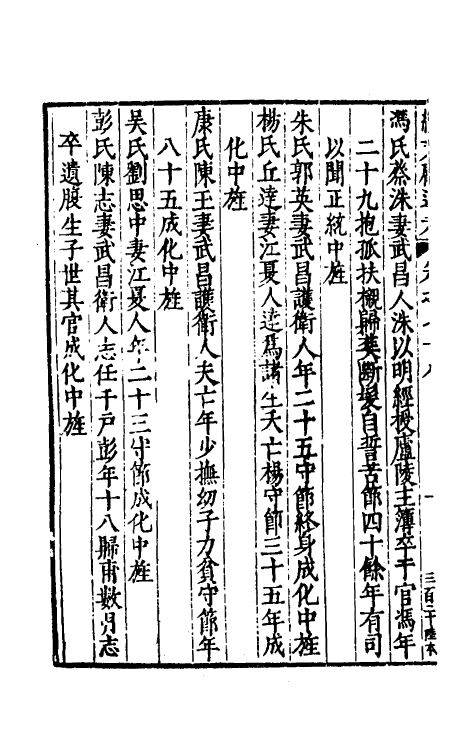 馮氏蔡洙妻武昌人洙以明經授廬陵主簿卒于官馮年
二十九抱孤扶櫬歸塟斷髮自誓苦節四十餘年有司
以聞正統中旌
朱氏郭英妻武昌護衛人年二十五守節終身成化中旌
楊氏丘逵妻江夏人逵爲諸生夭亡楊守節三十五年成
化中旌
康氏陳王妻武昌護衛人夫亡年少撫幼子力貧守節年
八十五成化中旌
吳氏劉思中妻江夏人年二十三守節成化中旌
彭氏陳志妻武昌衛人志任千戶彭年十八歸甫數月志
卒遺腹生子世其官成化中旌